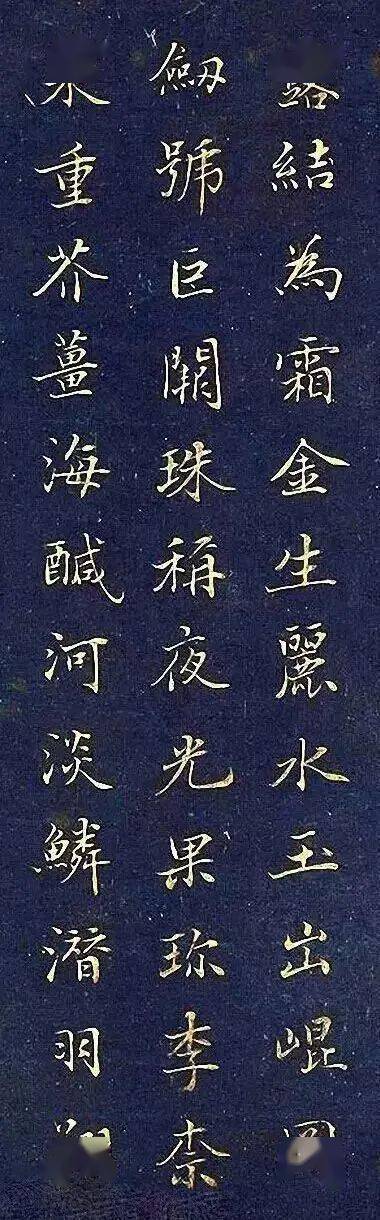 結為霜金生麗水玉出崐
劒號巨闕珠稱夜光果珎李柰
重芥薑海醎河淡鱗潛羽